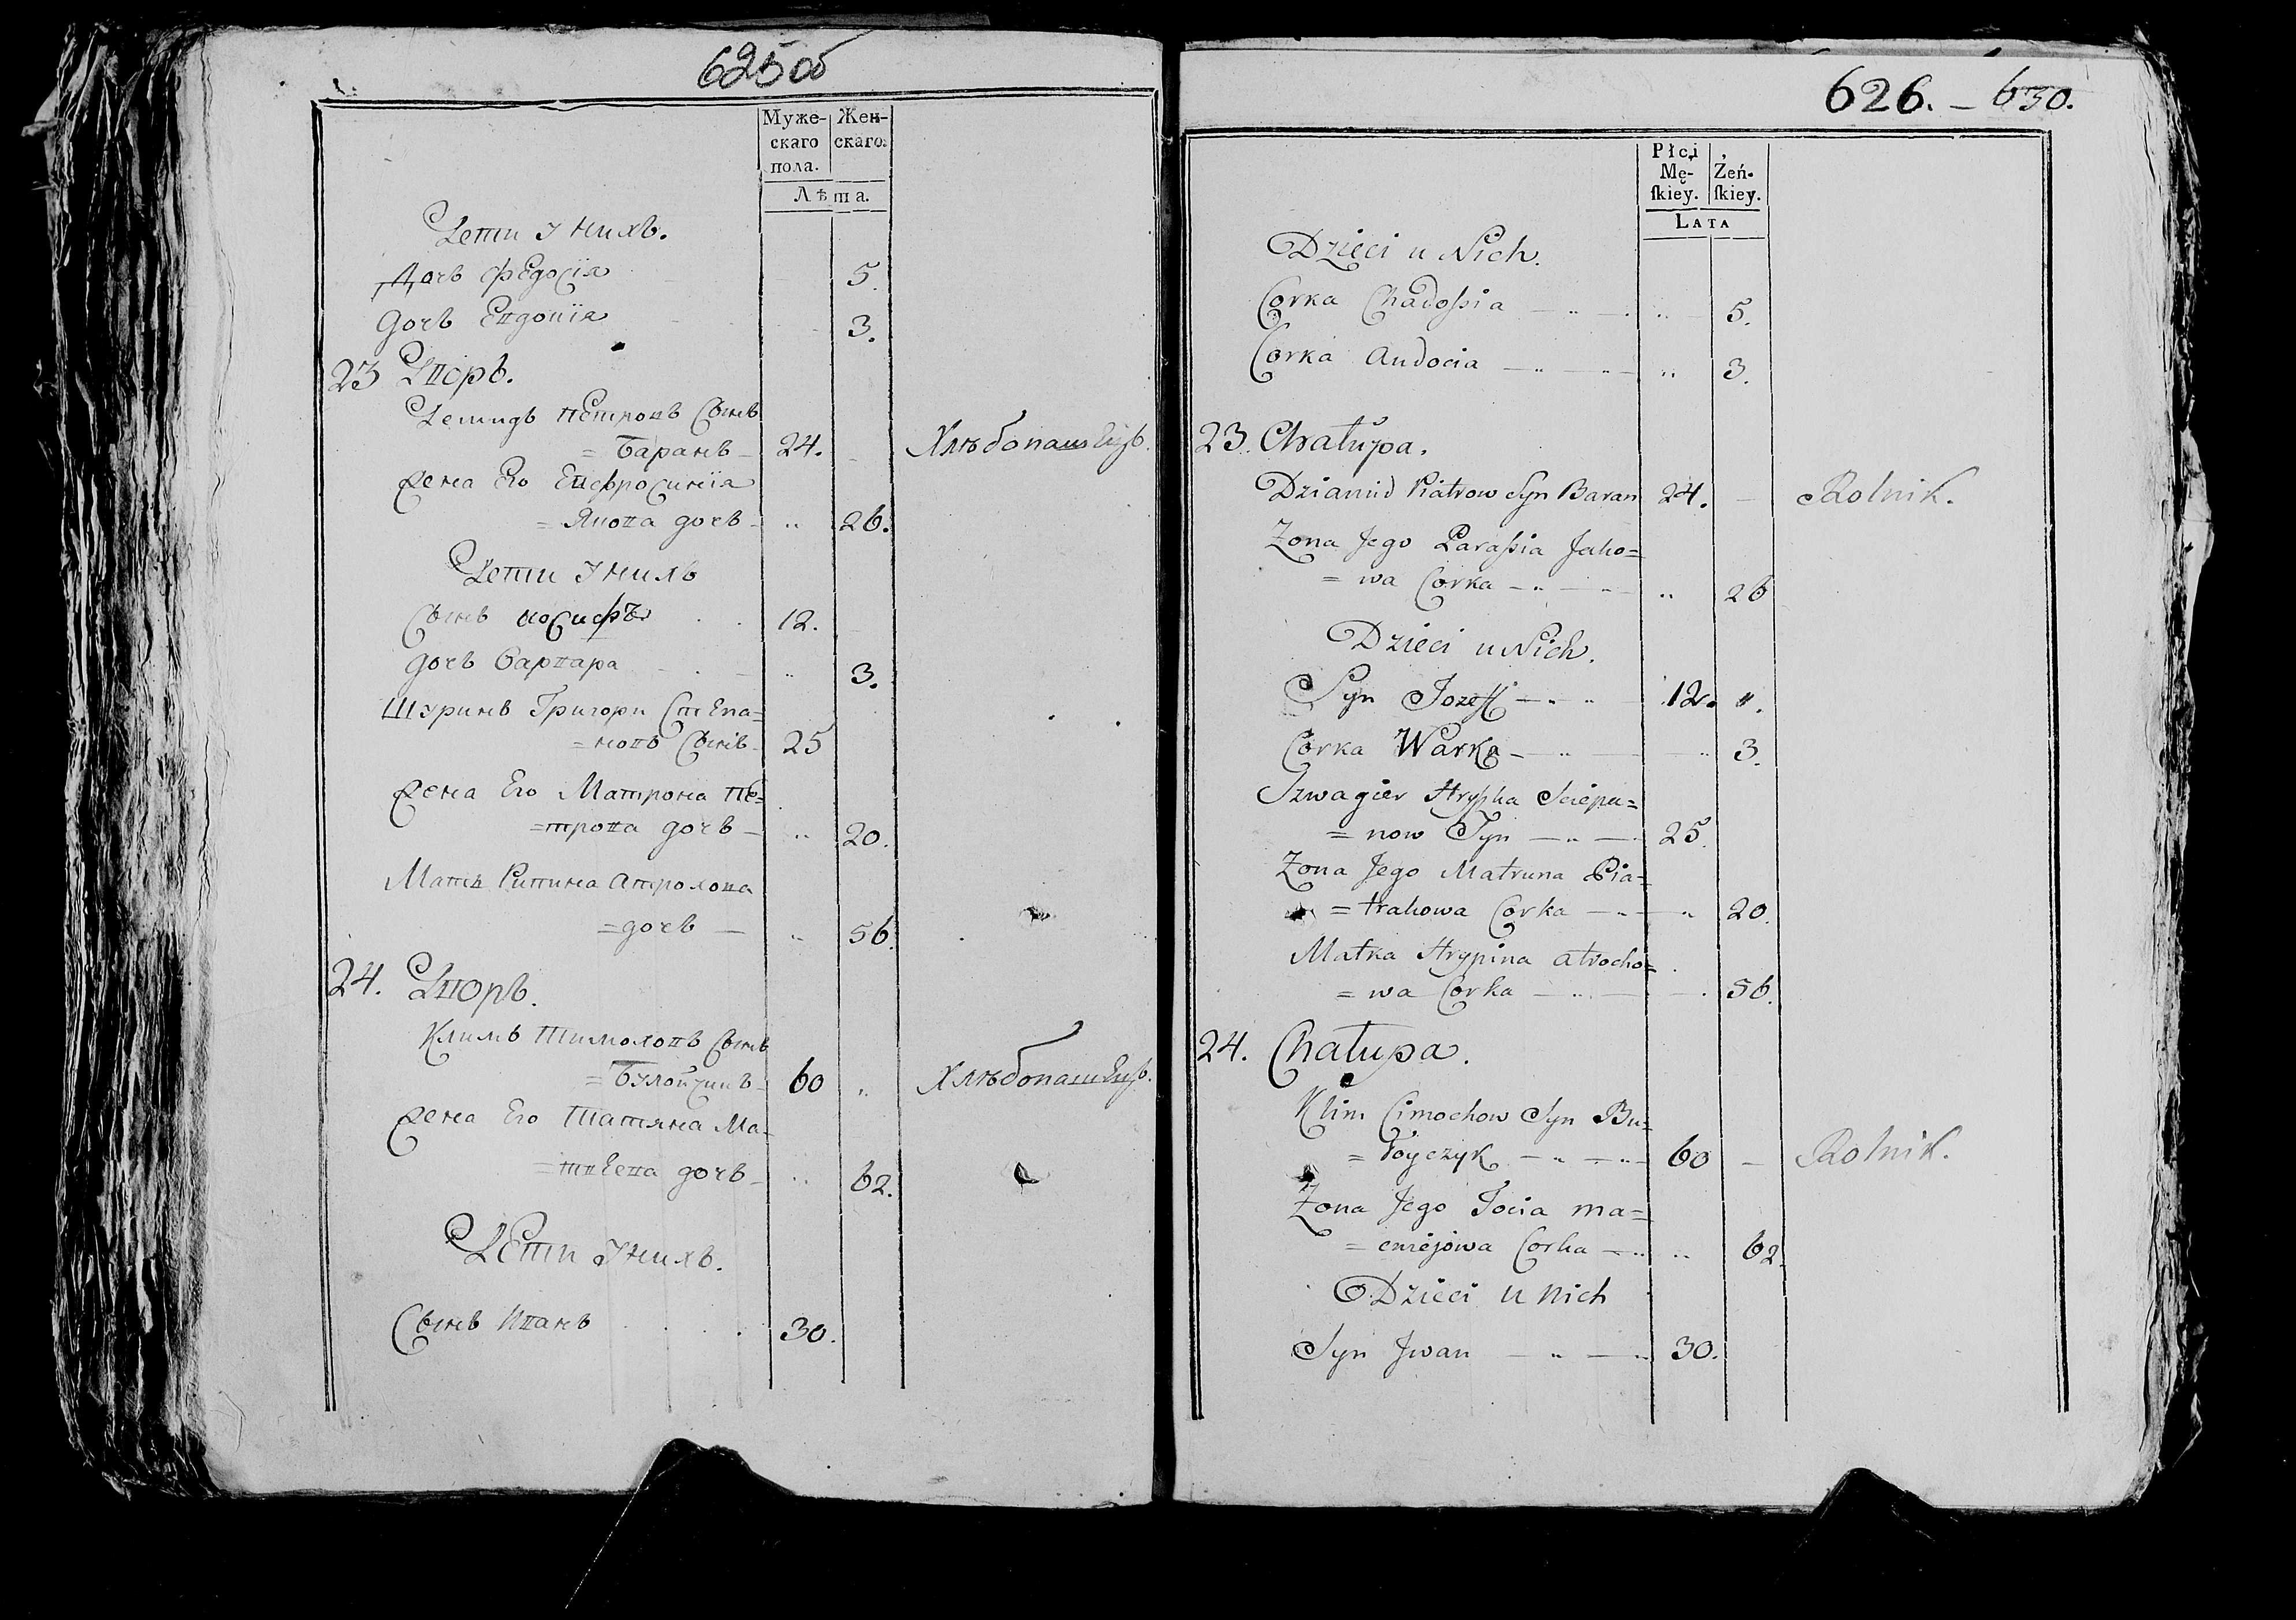 625об
Муже-
скаго
пола.
Жен-
скаго.
Лѣта.
Дети У нихъ.
Дочь Федосія 5.
Дочь Евдокія 3.
23 Дворъ.
Демидъ Петровъ Сынъ
= Баранъ 24. Хлѣбопашецъ.
Жена Его Евфросинія
= Якова дочь 26.
Дети У нихъ
Сынъ иосифъ 12.
дочь Варвара 3.
Шуринъ Григори Степа=
=новъ Сынъ 25
Жена Его Матрона Пе=
=трова дочь 20.
Мать Рипина Атрохова
=дочь 56.
24. Дворъ.
Климъ Тимоховъ Сынъ
= Булойчикъ 60 Хлѣбопашецъ.
Жена Его Татяна Ма-
=твеева дочь 62.
Дети Унихъ.
Сынъ Иванъ 30.
626. – 630.
Płci
Mę-
ſkiey.
Żeń-
ſkiey.
LATA
Dzieci u Nich.
Corka Chadoſsia 5.
Corka Audocia 3.
23. Chałupa.
Dziamid Piatrow Syn Baran 24. Rolnik.
Zona Jego Paraſsia Jaho=
= wa Corka 26
Dzieci u Nich.
Syn Jozeff 12.
Corka Warka 3.
Szwagier Hrysha Sciepa=
= now Syn 25.
Zona Jego Matruna Pia=
= trahowa Corka 20.
Matka Hrypina atrocho=
= wa Corka 56.
24. Chałupa.
Klim Cimochow Syn Bu=
= łoyczyk 60 Rolnik.
Zona Jego Tocia ma=
= ciejowa Corka 62.
Dzieci u nich
Syn Jwan 30.